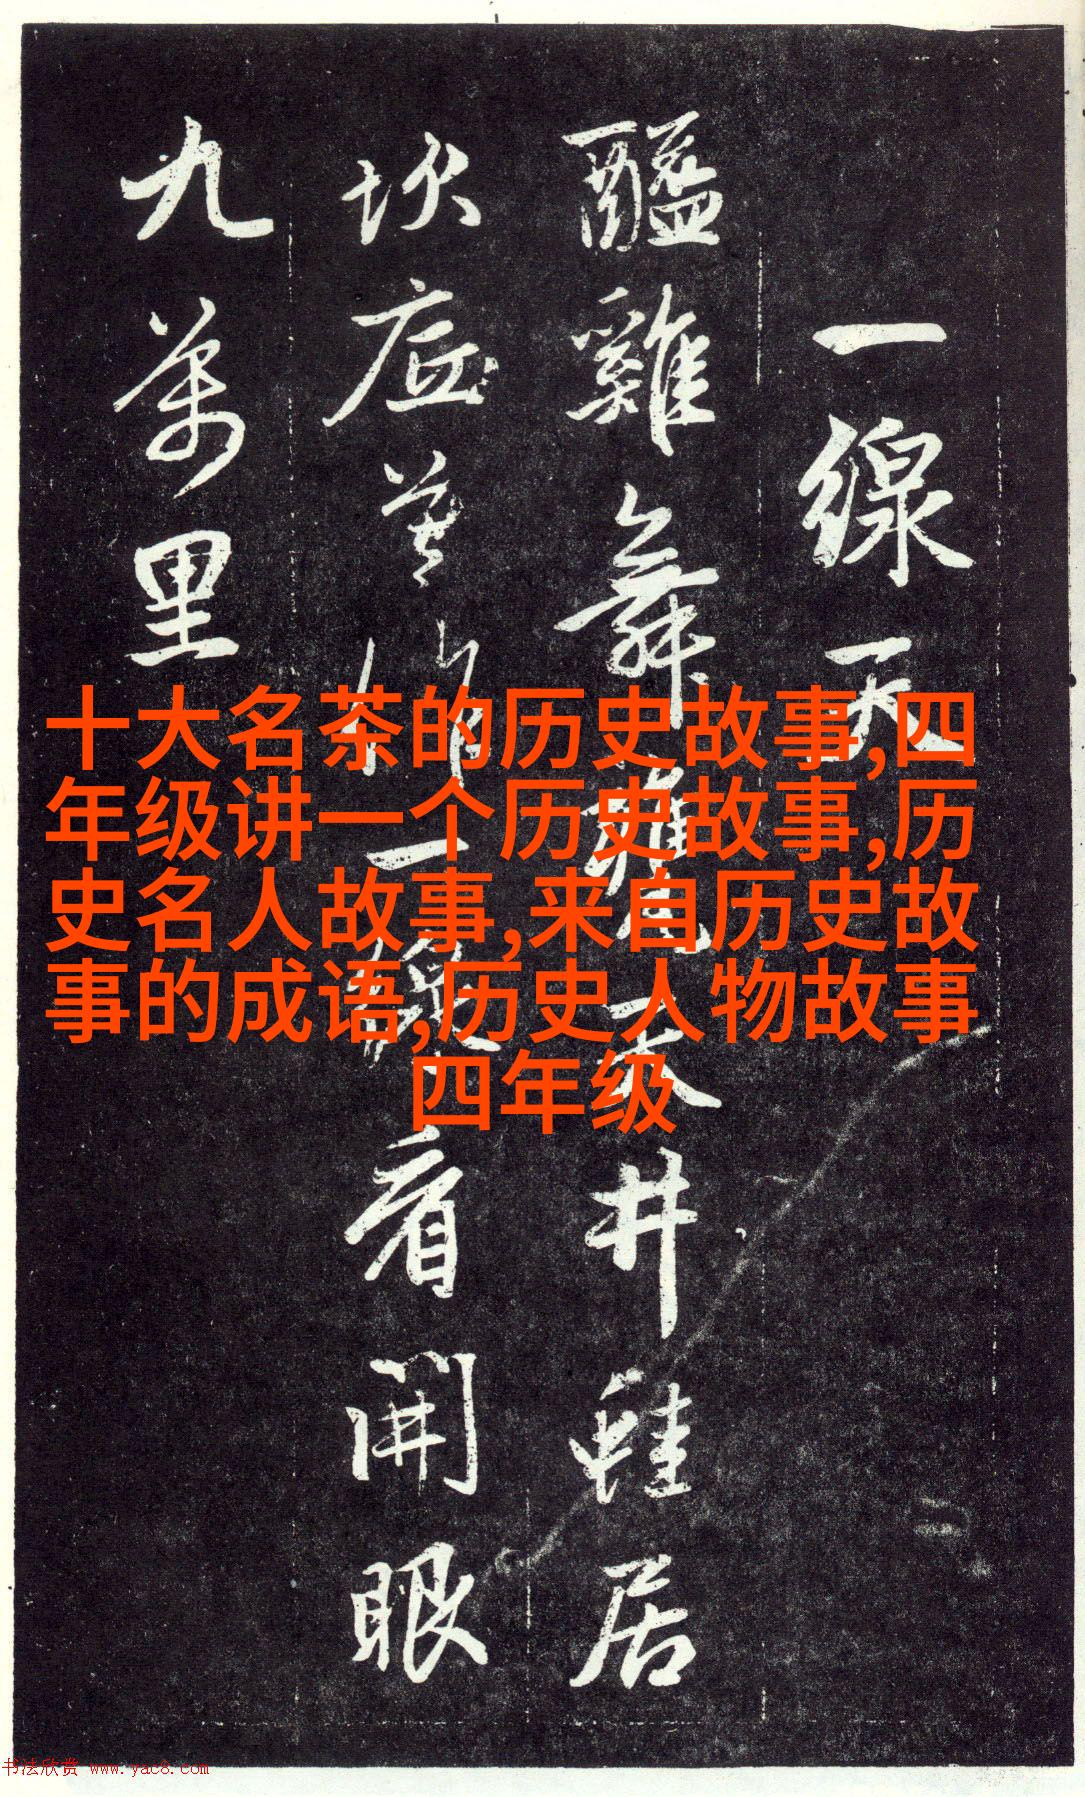 一線天
醯雞舞甕天井蛙居
坎底莫作一線看開眼
九萬里
十大名茶的历史故事,四
年级讲一个历史故事,历
史名人故事,来自历史故
事的成语,历史人物故事
四年级
书法欣赏 www.yac8.com